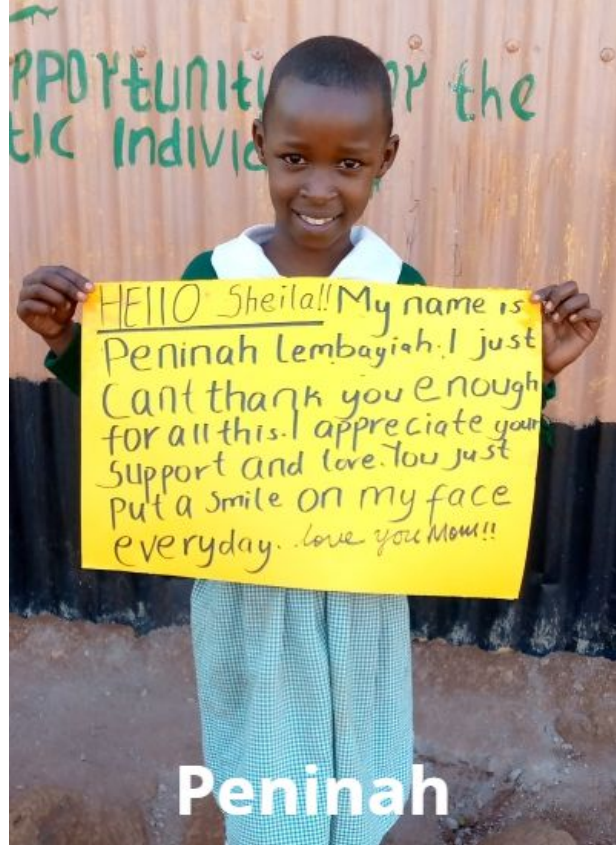 PPORTUNITI OR the
TIC INDIVI
HEllO Sheila!! My name is
Peninah Lembayiah. I just
Cant thank you enough
for all this. I appreciate your
Support and love. You just
put a Smile on my face
everyday. Love you Mom!!
Peninah